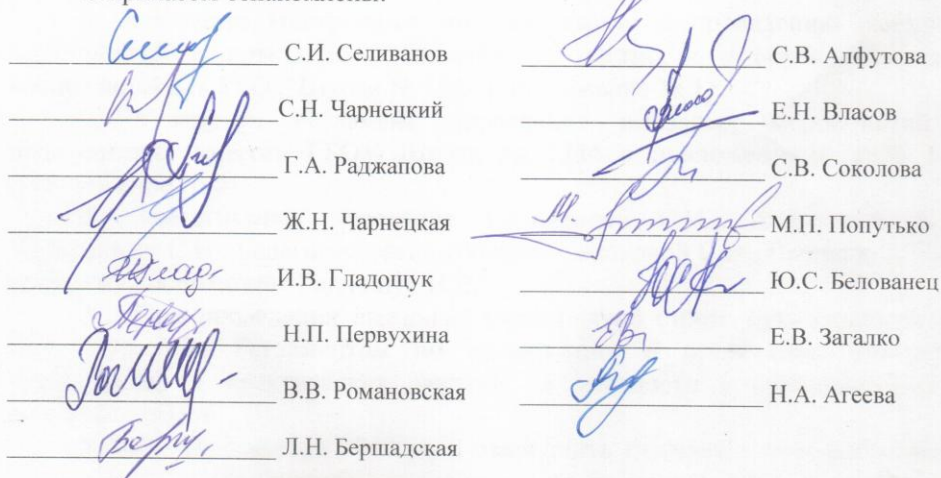 С.И. Селиванов
С.Н. Чарнецкий
Г.А. Раджапова
Ж.Н. Чарнецкая
И.В. Гладощук
Н.П. Первухина
В.В. Романовская
Л.Н. Бершадская
С.В. Алфутова
Е.Н. Власов
С.В. Соколова
М.П. Попутько
Ю.С. Белованец
Е.В. Загалко
Н.А. Агеева